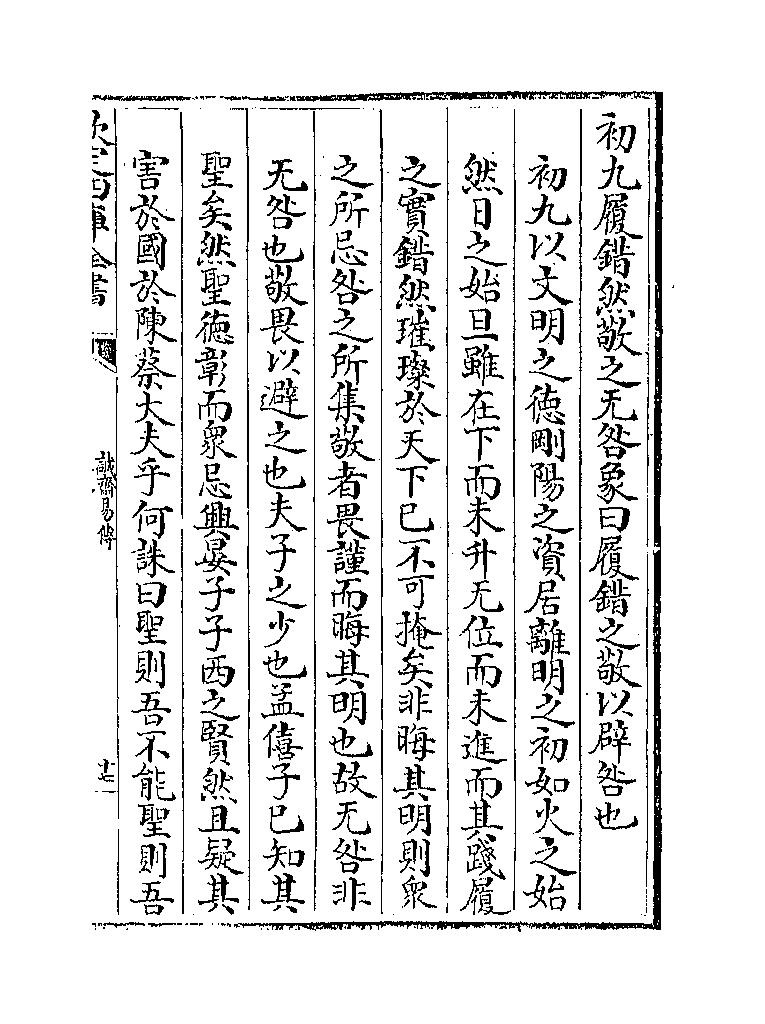 初九履錯然敬之无咎象曰履錯之敬以辟咎也
初九以文明之德剛陽之資居離明之初如火之始
然日之始旦雖在下而未升无位而未進而其踐履
之實錯然璀璨於天下已不可掩矣非晦其明則衆
之所忌咎之所集敬者畏謹而晦其明也故无咎非
无咎也敬畏以避之也夫子之少也孟僖子已知其
聖矣然聖德彰而衆忌興晏子子西之賢然且疑其
害於國於陳蔡大夫乎何誅曰聖則吾不能聖則吾
欽定四庫全書
誠齋易傳